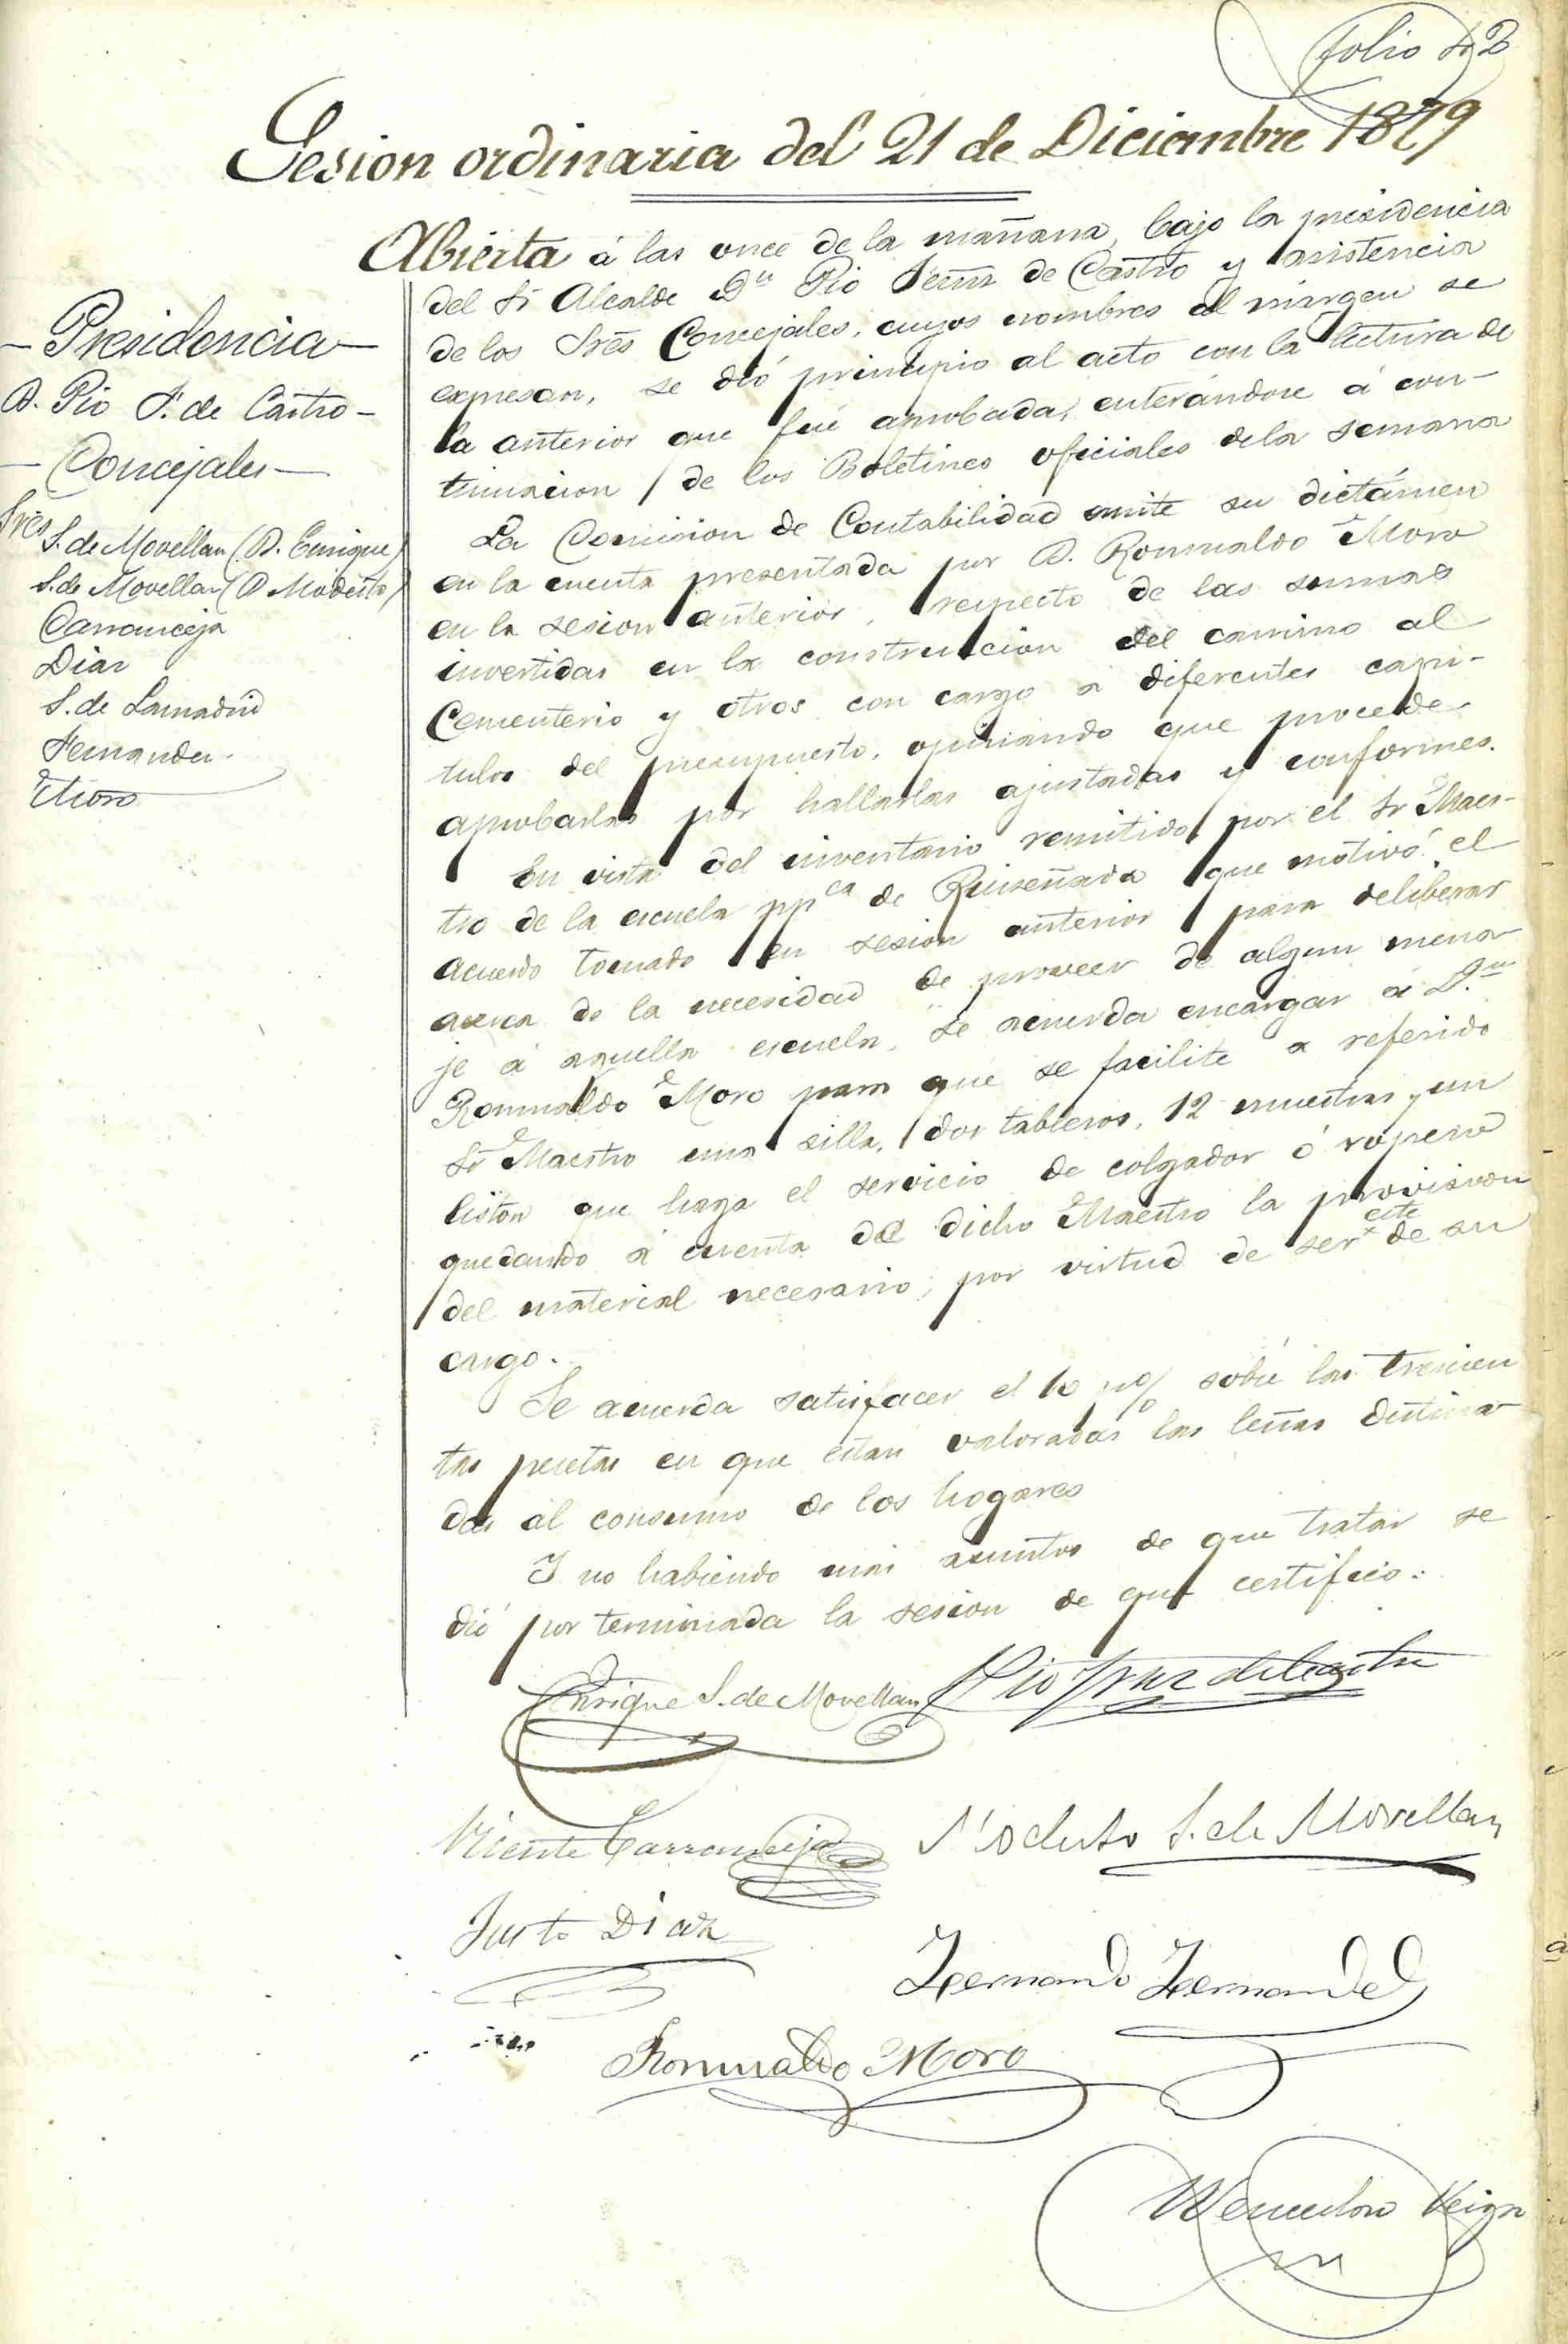 folio 42
Sesion ordinaria del 21 de Diciembre 1879
Abierta á las once de la mañana, bajo la presidencia
del Sr Alcalde Dn Pio Fernz de Castro y asistencia
de los Sres Concejales, cuyos nombres al márgen se
expresan, se dió principio al acto con la lectura de
la anterior que fué aprobada, enterándose á con-
tinuacion de los Boletines oficiales dela semana
La Comision de Contabilidad emite su dictámen
en la cuenta presentada por D. Romualdo Moro
en la sesion anterior, respecto de las sumas
invertidas en la construccion del camino al
Cementerio y otros con cargo a diferentes capi-
tulos del presupuesto, opinando que procede
aprobarlas por hallarlas ajustadas y conformes.
En vista del inventario remitido por el Sr Maes-
tro de la escuela ppca de Ruiseñada que motivó el
acuerdo tomado en sesion anterior para deliberar
acerca de la necesidad de proveer de algun mena-
je á aquella escuela, se acuerda encargar á Dn
Romualdo Moro para que se facilite a referido
Sr Maestro una silla, dos tableros, 12 muestras y un
liston que haga el servicio de colgador ó ropero
quedando á cuenta del dicho Maestro la provision
del material necesario, por virtud de ser este de su
cargo.
Se acuerda satisfacer el 10 p% sobre las trescien
tas pesetas en que estan valoradas las leñas destina-
das al consumo de los hogares
Y no habiendo mas asuntos de que tratar se
dió por terminada la sesion de que certifico.
- Presidencia -
D. Pio F. de Castro -
- Concejales -
Sres
S. de Movellan (D. Enrique)
S. de Movellan (D Modesto)
Carranceja
Diaz
S. de Lamadrid
Fernandez
Moro
Enrique S. de Movellan
Pio Frnz de Castro
Vicente Carranceja
Modesto S. de Movellan
Justo Diaz
Fernando Fernandez
Romualdo Moro
Wenceslao Veiga